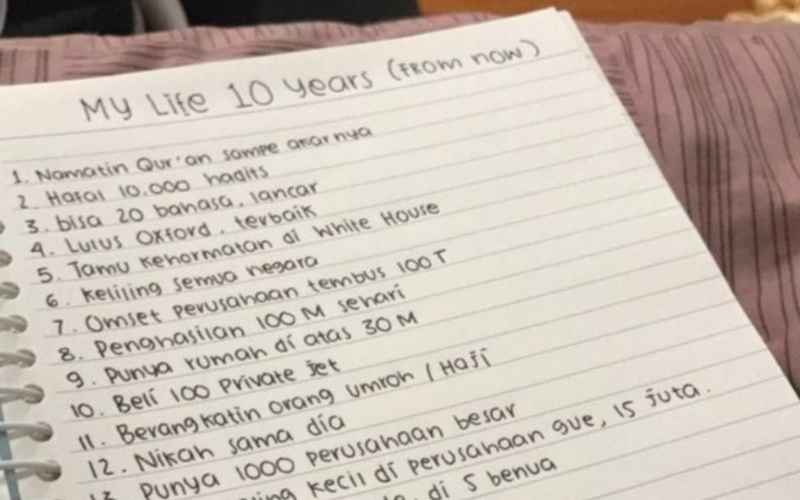 My Life 10 years (From now)
1. Namatin Qur'an sampe akarnya
2. Hafal 10.000 hadits
3. bisa 20 bahasa, lancar
4. Lulus Oxford, terbaik
5. Tamu kehormatan di White House
6. Keliling semua negara
7. Omset perusahaan tembus 100 T
8. Penghasilan 100 M sehari
9. Punya rumah di atas 30 M
10. Beli 100 Private jet
11. Berangkatin orang umroh / Haji
12. Nikah sama dia
13 Punya 1000 perusahaan besar
kecil di perusahaan gue, 15 juta.
di 5 benua